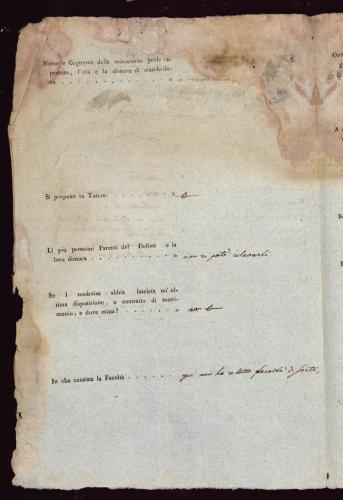 Nome e Cognome della minorenne prole su-
perstite, l'età e la dimora di ciascheduno
na . . . . . . . . . . . . "
Si propone in Tutore . . . . . . . . . . "
Li più prossimi Parenti del Defonto e la
loro dimora . . . . . . . . . . . " non si potè rilevarli
Se il medesimo abbia lasciata un'ul-
tima disposizione, o contratto di matri-
monio, e dove esista? . . . . . . . " non
In che consista la Facoltà . . . . . . qui non ha relitto facoltà di sorte,